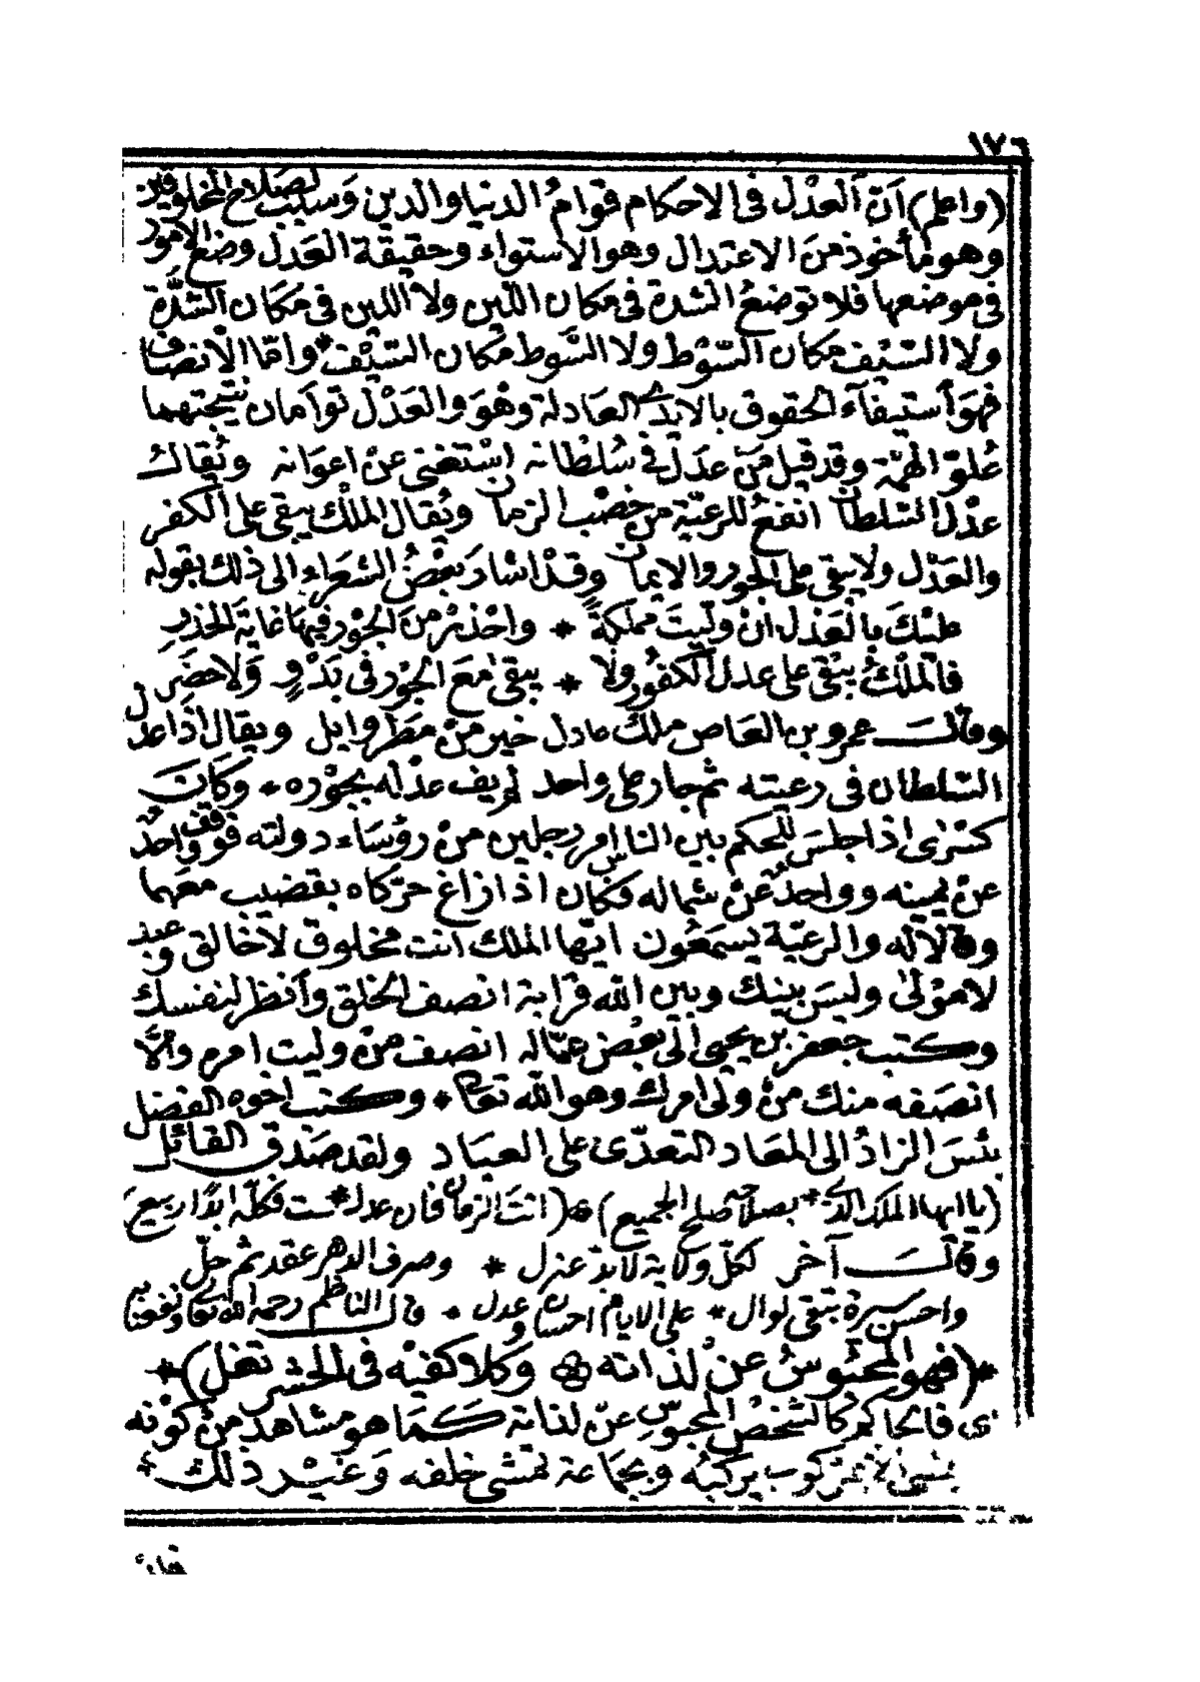 ١٧٦
(واعلم) أن العدْل فى الاحكام قوامُ الدنيا والدين وَسبب لصَلاح المخلوقين
وهو مأخوذ منَ الاعتدال وهو الاستواء وحقيقة العَدل وضع الامور
فى موضعها فلا توضعُ الشدة فى مكان اللين ولا اللين فى مكان الشدَّة
ولا السَيْف مكان السَّوْط ولا السَّوط مكان السَيْف * وامّا الانصاف
فهوَ أستيفآء الحقوق بالايدى العَادلة وهوَ والعَدْل توأمان نتيجتهما
عُلوّ الهمّة وقد قيل مَن عدَل فى سُلطانه اسْتغنى عنْ اعوَانه ويُقال
عدْل السّلطان انفعُ للرعيّة من خصْب الزمان ويُقال الملْك يبقى على الكفر
والعَدْل ولا يبقى على الجور والايمان وقدْ اشار بعْضُ الشعَراء الى ذلك بقوله
عليْكَ بالعَدْل انْ وليتَ مملكةً * واحْذرْ منَ الجوْر فيهَا غاية الحذر
فالملْكُ يبْقى على عدل الكفُور ولا * يبقى مَعَ الجوْر فى بَدْوٍ وَلا حضَر
وقال عمرو بن العَاص ملك عادل خير منْ مَطر وابل ويقال اذا عدل
السّلطان فى رعيته ثم جار على واحد لم يف عدْله بجوْره * وكانَ
كسْرى اذا جلسَ للحكم بين الناس امر رجلين منْ رؤسَاء دولته فوقف واحد
عنْ يمينه وواحد عنْ شماله فكان اذا زاغ حرّكاه بقضيب معَهما
وقالا له والرعيّة يسمَعُون ايّها الملك انت مخلوق لا خالق وعبد
لا موْلى وليسَ بينك وبين الله قرَابة انصف الخلق وأنظر لنفسك
وكتب جعفر بن يحيى الى بعْض عمّاله انصف منْ وليت امره والّا
انصَفه منك منْ ولى امرك وهو الله تعالى * وكتب اخوه الفضل
بئسَ الزادُ الى المعَاد التعدّى على العبَاد ولقد صَدق القائل
(يا ايها الملك الذى * بصلاحه صلح الجميع) * (انتَ الزمان فان عدلت * فكلّه ابدًا ربيع)
وقال آخر لكلّ ولاية لا بدّ عزل * وصرف الدهر عقد ثم حلّ
واحسن سيرة تبقى لوال * على الايام احسان وعدل * قال الناظم رحمه الله تعالى ونفعنا به
*(فهو المحبُوسُ عنْ لذاته * وكلا كفيْه فى الحشر تغل)*
فالحاكم كالشخص المحبوس عنْ لذاته كما هو مشاهد منْ كوْنه
مركوب يركبُه وبجماعة تمشى خلفه وَغيْر ذلك